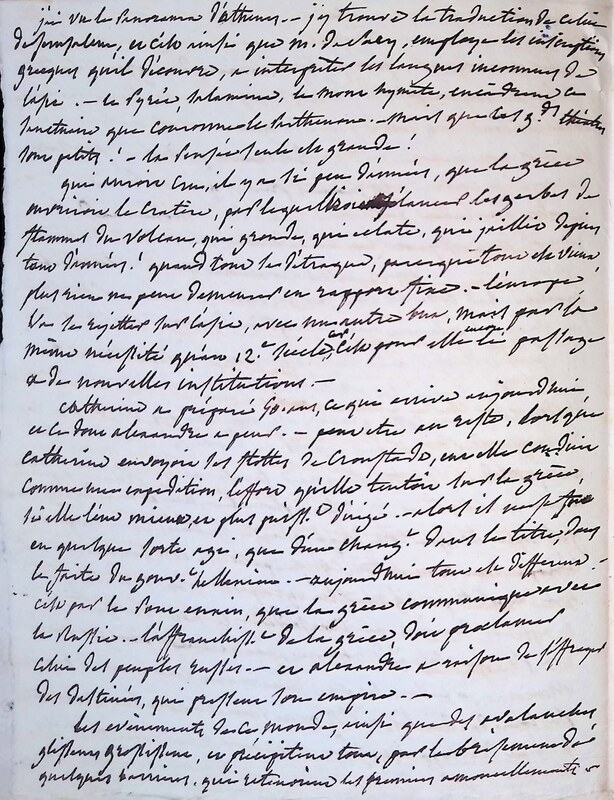 j'ai vu le Panorama d'athenes. – j'ay trouvé la traduction de celui
de jerusalem, et c'est ainsi que m. de clarac, employe les inscriptions
grecques qu'il découvre, a interpreter les langues inconnues de
l'asie. – le Pyrée, salamine, le mont hymete, encadrent ce
sanctuaire que couronne le Parthenon. – mais que les gds théatres
sont petits! – la Pensée seule est grande!
qui auroit cru, il y a si peu d'années, que la grèce
ouvriroit le cratère, par lequel s'élancent les gerbes de
flammes du volcan, qui gronde, qui eclate, qui jaillit depuis
tant d'années! quand tout se détraque, parceque tout est vieux
plus rien ne peut demeurer en rapport fixe. – l'europe
va se rejetter sur l'asie, avec une autre vue, mais par la
même nécessité qu'au 12.e siècle, c'est pour elle encore le passage
a de nouvelles institutions. –
Catherine a préparé 50. ans, ce qui arrive aujourdhui
et ce dont alexandre a peur. – peut etre au reste, lorsque
Catherine envoyoit des flottes de Cronstadt, eut elle conduire
comme une expedition, l'effort qu'elle tentoit sur la grèce,
si elle l'eut mieux, et plus puisst dirigé – alors il ne se fut
en quelque sorte agi, que d'un changt dans le titre, dans
le faite du gouvt hellenien. – aujourdhui tout est different. –
c'est par le Pont euxin, que la grèce communique avec
la Russie. – l'affranchisst de la grèce, doit proclamer
celui des peuples russes. – et alexandre a raison de s'effrayer
des destinées, qui pressent son empire. –
Les evènements de ce monde, ainsi que des avalanches
glissent grossissent, et précipitent tout, par le brisement de
quelques barrieres, qui retenoient les premiers amoncellements –